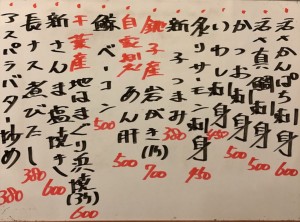 活〆かんぱち刺身
活〆真鯛刺身 500
かつお刺身 500
いわし刺身 450
炙りサーモン刺身 450
新子つまみ 380
銚子産 岩がき(1ヶ) 700
自家製 あん肝 500
鯨ベーコン 500
千葉産 地はまぐり浜焼(3ヶ) 600
新さんま塩焼き 600
長ナス煮びたし 380
アスパラバター炒め 380